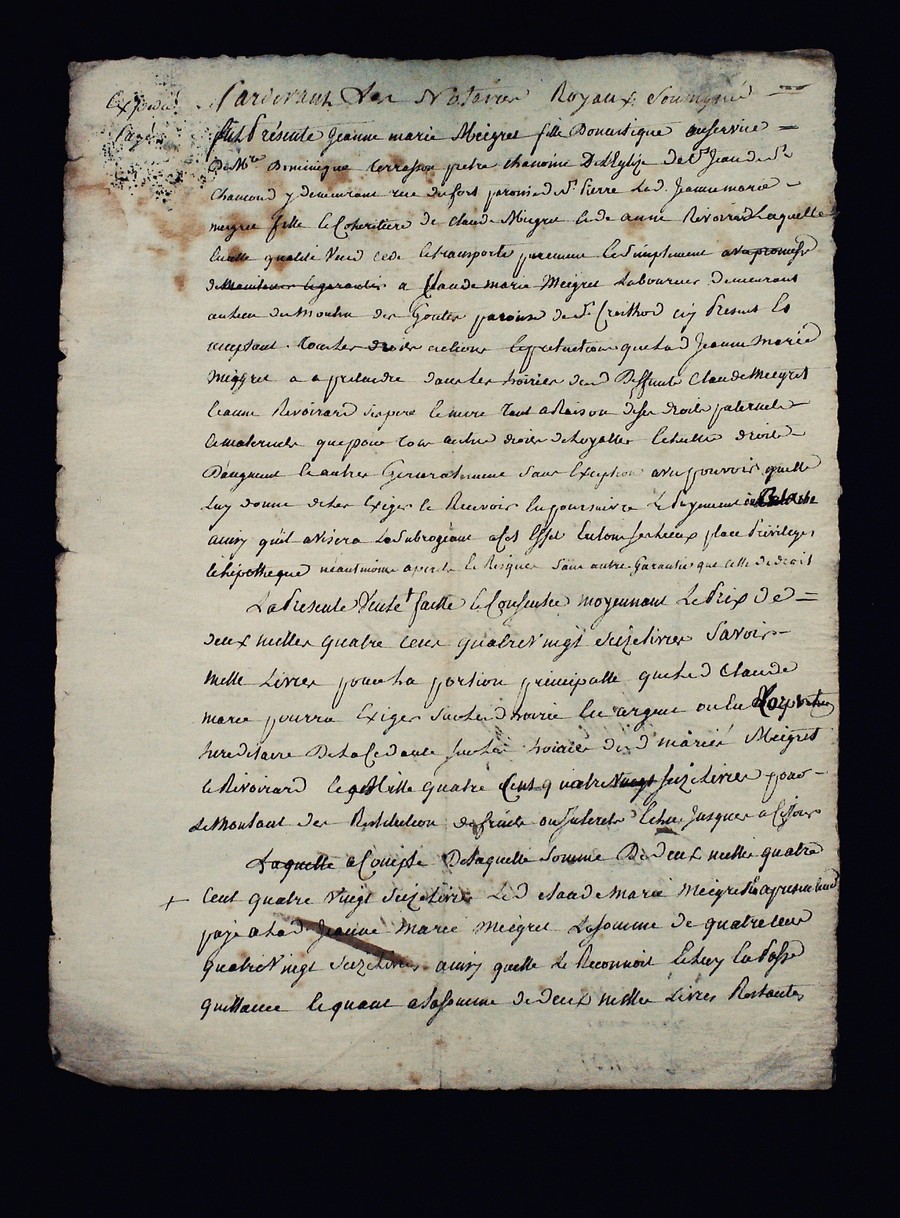 Expedié
Pardevant Les Notaires Royaux Soussignés
fut Présente Jeanne marie Meigret fille Domestique au service
De Mre Dominique terrasson pretre chanoine De l'Eglize de St Jean de St
Chamond y demeurant rue du fort paroisse de St Pierre La d. Jeanne marie
meigret fille et Coheritiere de Claude Meigret et de anne Revoirard Laquelle
en cette qualité Vend cede et transporte purement et Simplement avec promesse
de Maintenir et garantir a Claude marie Meigret Laboureur demeurant
au lieu du Moulin des Goutes paroisse de St Cristhod cy Present et
acceptant tous les droits actions et pretentions que la d Jeanne Marie
Meigret a a pretendre dans les hoiries des d Deffunts Claude Meigret
et anne Revoirard ses pere et mere tant a Raison de ses droits paternels
et maternels que pour tous autres droits de Loyalles Echultes droits
D'augment et autres Generalement Sans Exception avec pouvoir quelle
Luy donne de les Exiger et Recevoir En poursuivre Le Payement
ainsy quil avisera Le Subrogeant a cet Effet En tous ses Lieux place Privileges
et hipotheque néantmoins a perils et Risques Sans autre Garantie que celle de droit
La Presente Vente faitte et Consentie moyennant Le Prix de
deux milles quatre cent quatre Vingt Seize livres Savoir
mille Livres pour la portion principalle que le d Claude
marie pourra Exiger Sur les d hoirie En argent ou En Corps
hereditaire De la Cedante Sur les hoiries des d mariés Meigret
et Revoirard et Mille quatre Cent quatre Vingt Seize Livres pour
Le Montant des Restitution de fruits ou Interets Echus Jusques a Ce Jour
Laquelle a Compte De laquelle Somme De deux milles quatre
+ Cent quatre Vingt Seize livres Le d Claude Marie Meigret a presentement
payé a La d Jeanne Marie Meigret La Somme de quatre Cent
quatre Vingt Seize Livres ainsy quelle Le Reconnoit et Luy En Passe
quittance Et quant a La Somme de deux milles Livres Restantes